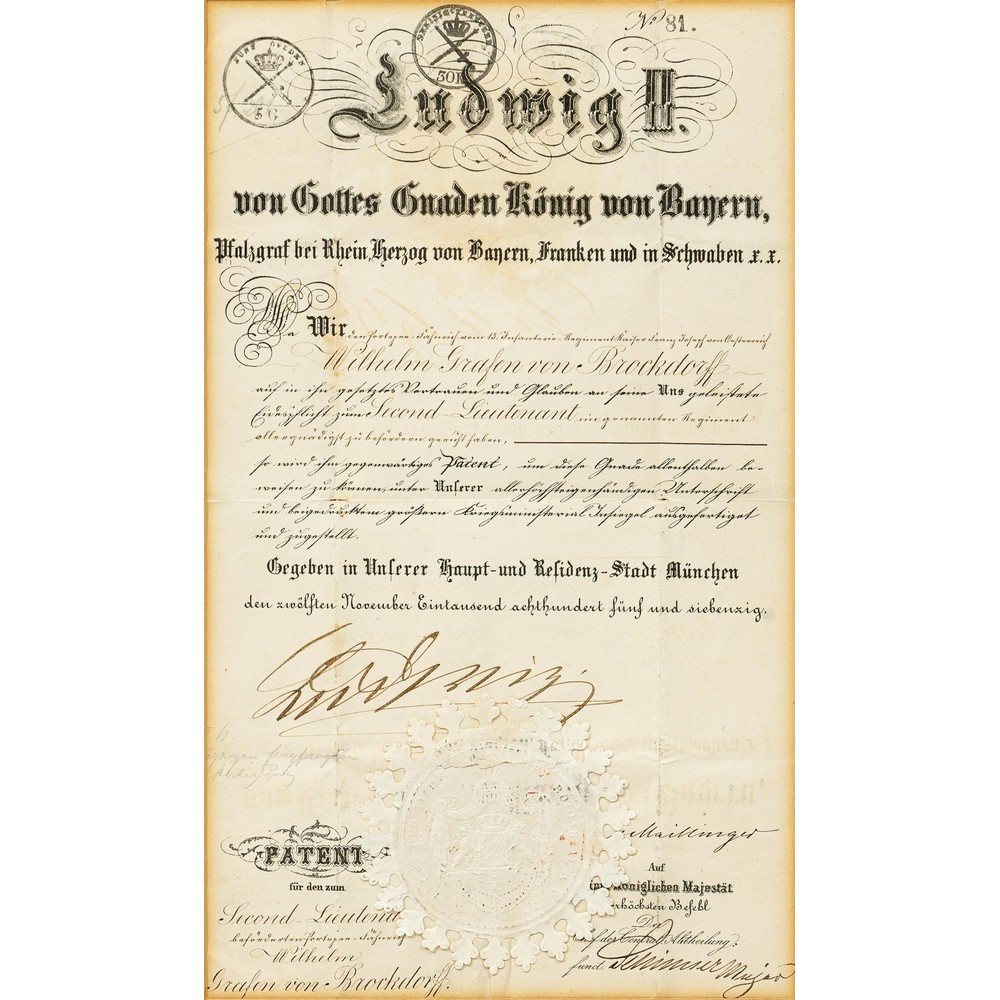 No. 81.
FÜNF GULDEN
5 G
DREISIG KREUZER
30 K
Ludwig II.
von Gottes Gnaden König von Bayern,
Pfalzgraf bei Rhein, Herzog von Bayern, Franken und in Schwaben x. x.
Da Wir den Portepee-Fähnrich vom 13. Infanterie-Regiment Kaiser Franz Joseph von Oesterreich
Wilhelm Grafen von Brockdorff
auf in ihn gesetztes Vertrauen und Glauben an seine Uns geleistete
Eidespflicht zum Second-Lieutenant im genannten Regiment
allergnädigst zu befördern geruht haben,
so wird ihm gegenwärtiges Patent, um diese Gnade allenthalben be-
weisen zu können, unter Unserer allerhöchsteigenhändigen Unterschrift
und beigedrucktem größern Kriegsministerial Insiegel ausgefertiget
und zugestellt.
Gegeben in Unserer Haupt- und Residenz-Stadt München
den zwölften November Eintausend achthundert fünf und siebenzig.
Ludwig
Maillinger
PATENT
für den zum
Second-Lieutena
beförderten Portepee-Fähnrich
Wilhelm
Grafen von Brockdorff.
Auf
königlichen Majestät
rhöchsten Befehl
Der
f der Central-Abtheilung:
funct. Major